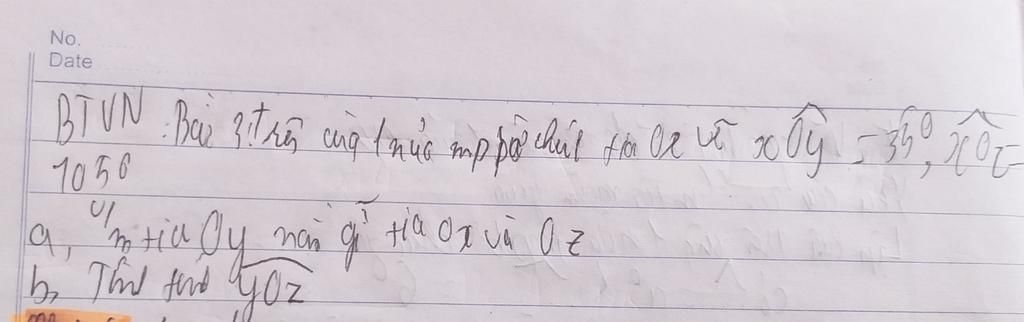 No.
Date
BTVN : Bài 3: trên cùng 1 nửa mp bờ chứa tia Ox vẽ xOy = 35⁰, xOz =
105⁰
a, tia Oy nằm giữa tia Ox và Oz
b, Tính yOz